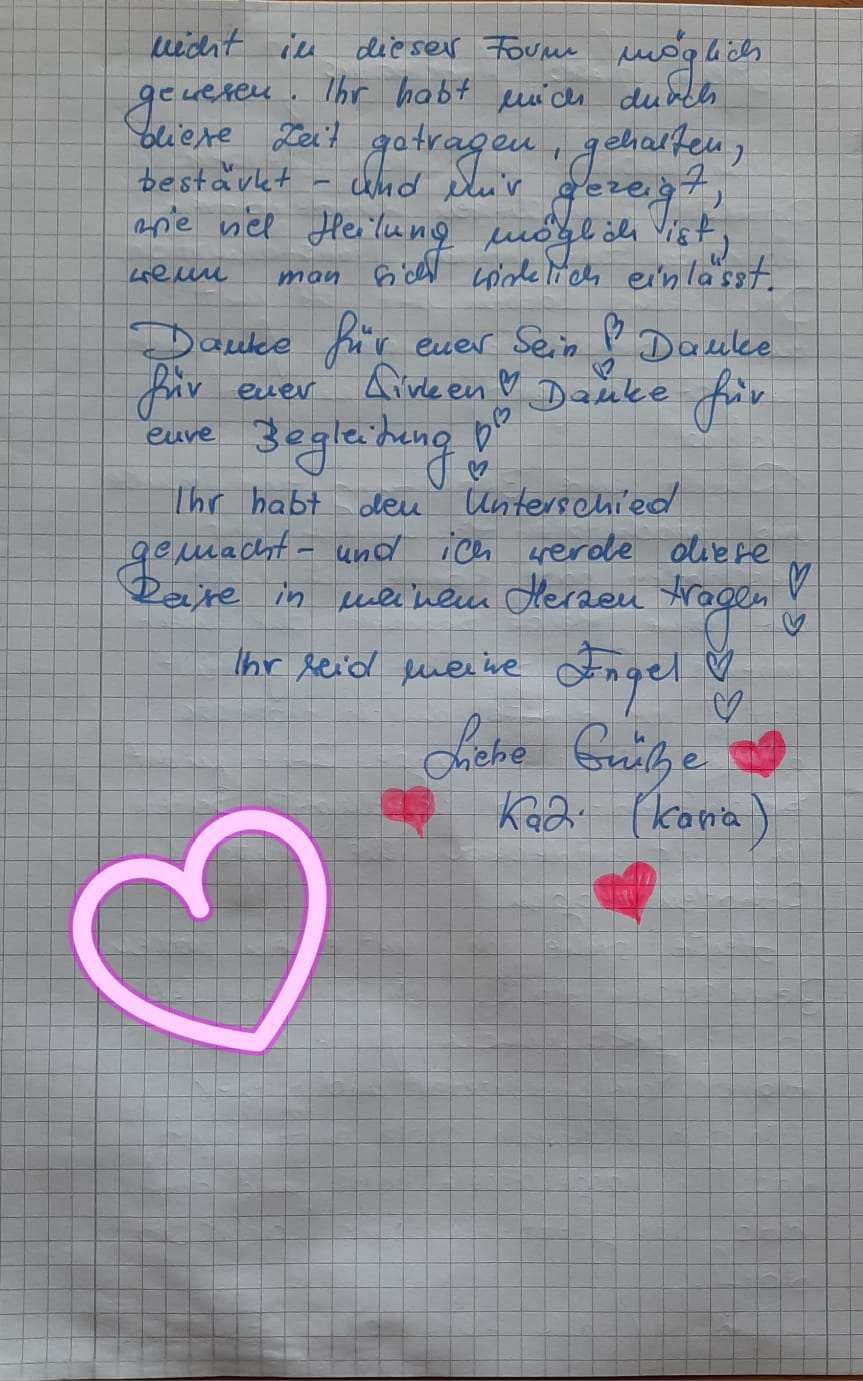 nicht in dieser Form möglich
gewesen. Ihr habt mich durch
diese Zeit getragen, gehalten,
bestärkt - und mir gezeigt,
wie viel Heilung möglich ist,
wenn man sich wirklich einlässt.
Danke für euer Sein Danke
für euer Wirken Danke für
eure Begleitung
Ihr habt den Unterschied
gemacht - und ich werde diese
Reise in meinem Herzen tragen
Ihr seid meine Engel
Liebe Grüße